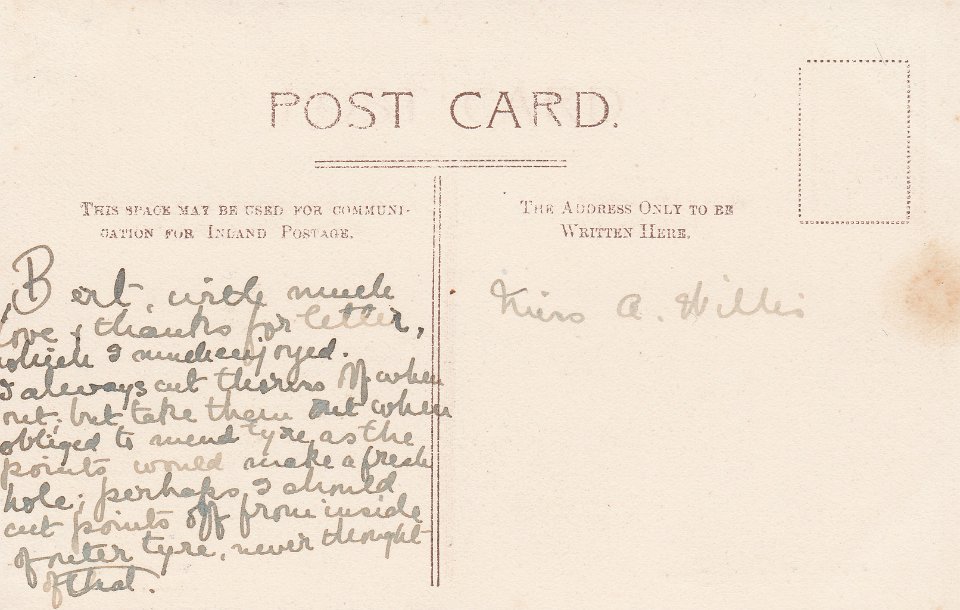 POST CARD.
THIS SPACE MAY BE USED FOR COMMUNI-
CATION FOR INLAND POSTAGE.
THE ADDRESS ONLY TO BE
WRITTEN HERE.
Bert, with much
love & thanks for letter,
which I much enjoyed.
I always cut thorns off when
out; but take them out when
obliged to mend tyre, as the
points would make a fresh
hole; perhaps I should
cut points off from inside
of outer tyre, never thought
of that.
Miss A. Willis